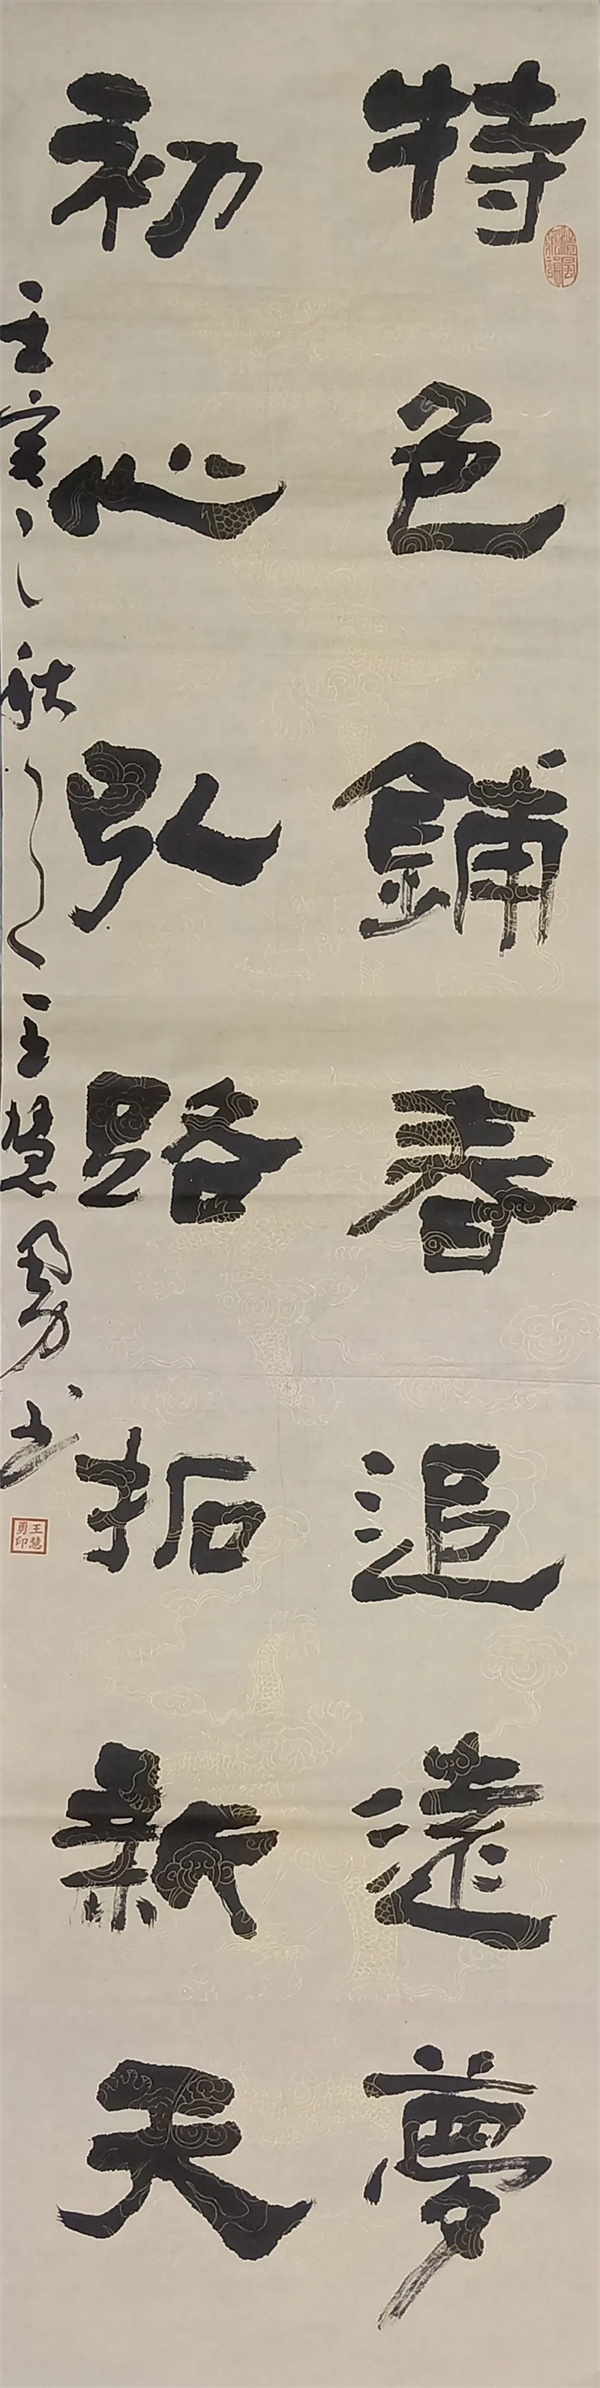 特色鋪春追遠夢
初心弘路拓新天
壬寅之秋 王慧勇书
王慧勇印